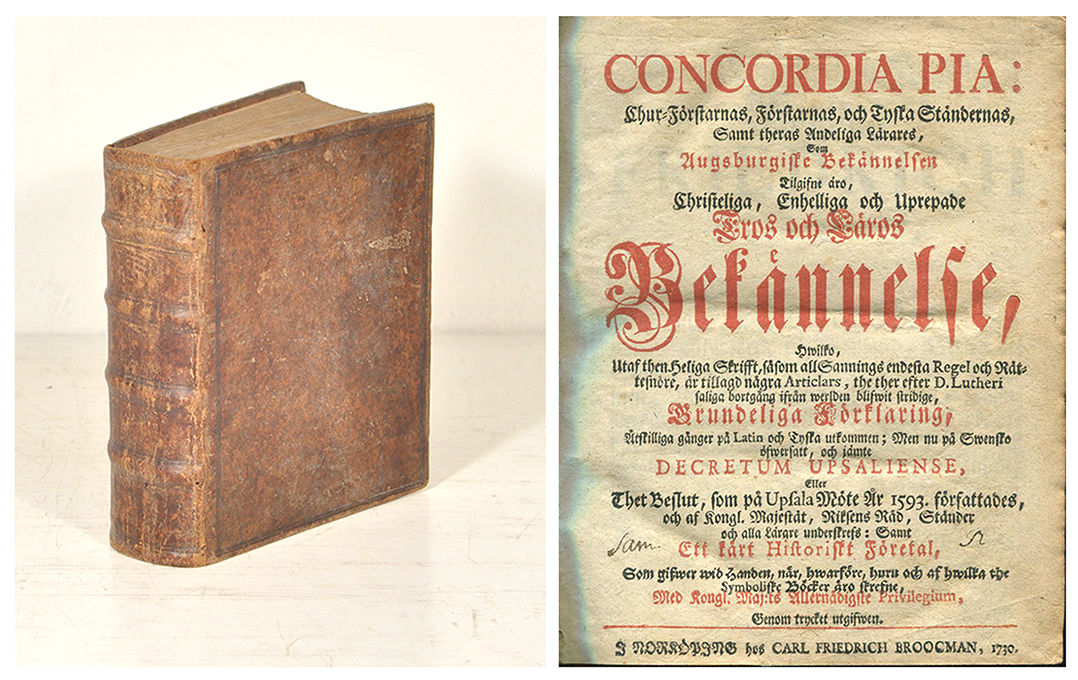 CONCORDIA PIA:
Chur-Förstarnas, Förstarnas, och Tyska Ständernas,
Samt theras Andeliga Lärares,
Som
Augsburgiske Bekännelsen
Tilgifne äro,
Christeliga, Enhelliga och Uprepade
Tros och Läros
Bekännelse,
Hwilko,
Utaf then Heliga Skrifft, såsom all Sannings endesta Regel och Rät-
tesnöre, är tillagd några Articlars, the ther efter D. Lutheri
saliga bortgång ifrån werlden blifwit stridige,
Grundeliga Förklaring,
Åtskilliga gånger på Latin och Tyska utkommen; Men nu på Swensko
öfwersatt, och jämte
DECRETUM UPSALIENSE,
Eller
Thet Beslut, som på Upsala Möte År 1593. författades,
och af Kongl. Majestät, Riksens Råd, Ständer
och alla Lärare underskrefs: Samt
Sam.
Ett kårt Historiskt Företal,
Som gifwer wid Handen, när, hwarföre, huru och af hwilka the
Symboliske Böcker äro skrefne,
Med Kongl. Maj:ts Allernådigste Privilegium,
Genom trycket utgifwen.
I NORKÖPING hos CARL FRIEDRICH BROOCMAN, 1730.